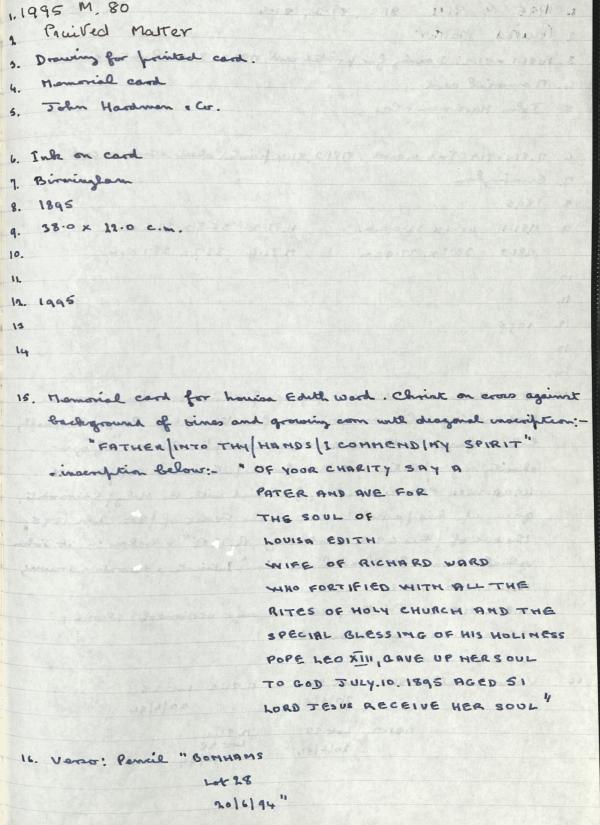 1. 1995 M. 80
2 Printed Matter
3. Drawing for printed card.
4. Memorial card
5. John Hardman & Co.
6. Ink on card
7. Birmingham
8. 1895
9. 38.0 x 22.0 c.m.
10.
11
12. 1995
13
14
15. Memorial card for Louisa Edith Ward. Christ on cross against
background of vines and growing corn with diagonal inscription:-
"FATHER/INTO THY/HANDS/I COMMEND/MY SPIRIT"
+ inscription below:- "OF YOUR CHARITY SAY A
PATER AND AVE FOR
THE SOUL OF
LOUISA EDITH
WIFE OF RICHARD WARD
WHO FORTIFIED WITH ALL THE
RITES OF HOLY CHURCH AND THE
SPECIAL BLESSING OF HIS HOLINESS
POPE LEO XIII, GAVE UP HER SOUL
TO GOD JULY.10.1895 AGED 51
LORD JESUS RECEIVE HER SOUL"
16. Verso: Pencil "BONHAMS
Lot 28
20/6/94"